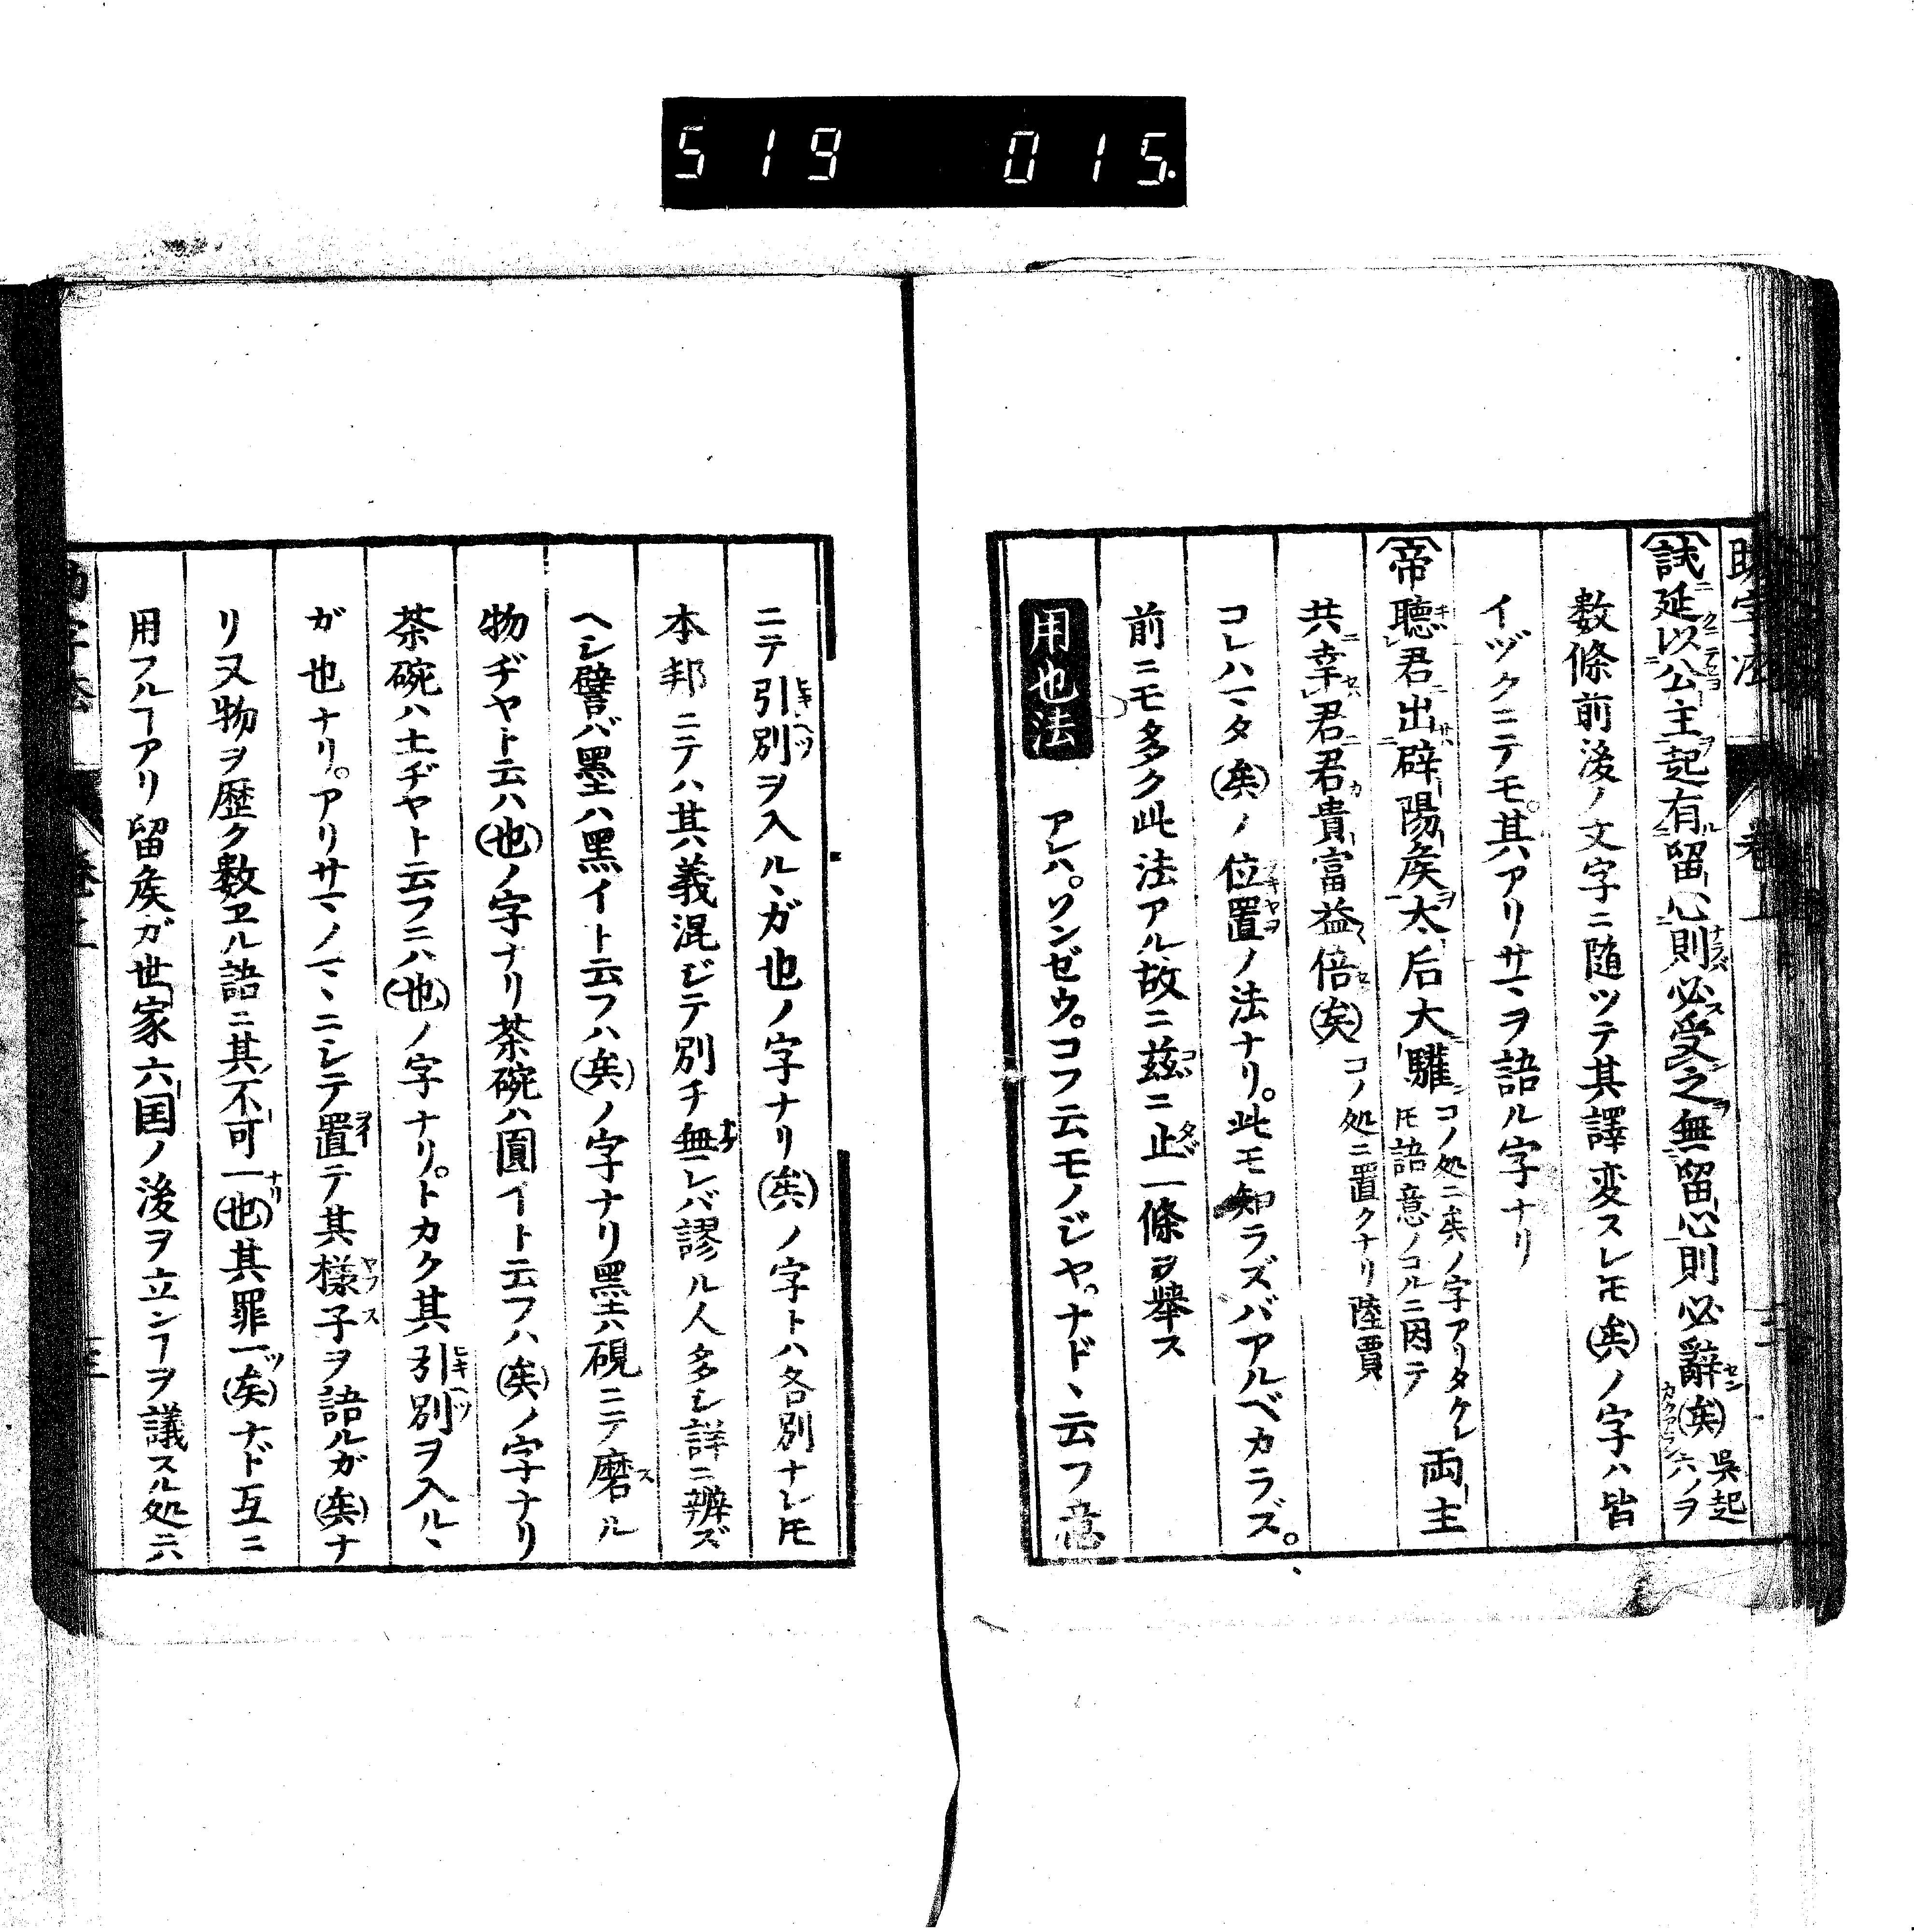 519 015.
試延以公主起有留心則必受之無留心則必辭矣 呉起
数條前後ノ文字ニ随ツテ其譯変スレ𪜈矣ノ字ハ皆
イヅクニテモ其アリサマヲ語ル字ナリ
帝聽君出辟陽矦太后大驩 コノ処ニ矣ノ字アリタケレ𪜈語意ノコルニ因テ 両主
共幸君君貴冨益倍矣 コノ処ニ置クナリ陸賈
コレハマタ矣ノ位置ノ法ナリ。此モ知ラズバアルベカラズ。
前ニモ多ク此法アル故ニ茲ニ止一條ヲ舉ス
用也法 アレハ。ソンゼウ。コフ云モノジヤ。ナド、云フ意
ニテ引別ヲ入ル、ガ也ノ字ナリ矣ノ字トハ各別ナレ𪜈
本邦ニテハ其義混ジテ別チ無レバ謬ル人多シ詳ニ辨ズ
ヘシ譬バ墨ハ黒イト云フハ矣ノ字ナリ墨ハ硯ニテ磨ル
物ヂヤト云ハ也ノ字ナリ茶碗ハ圓イト云フハ矣ノ字ナリ
茶碗ハ土ヂヤト云フニハ也ノ字ナリ。トカク其引別ヲ入ル、
ガ也ナリ。アリサマノマヽニシテ置テ其様子ヲ語ルガ矣ナ
リ又物ヲ歴ク数ヱル語ニ其不可一也其罪一矣ナド互ニ
用フルヿアリ留矦ガ世家六国ノ後ヲ立ンヿヲ議スル処六